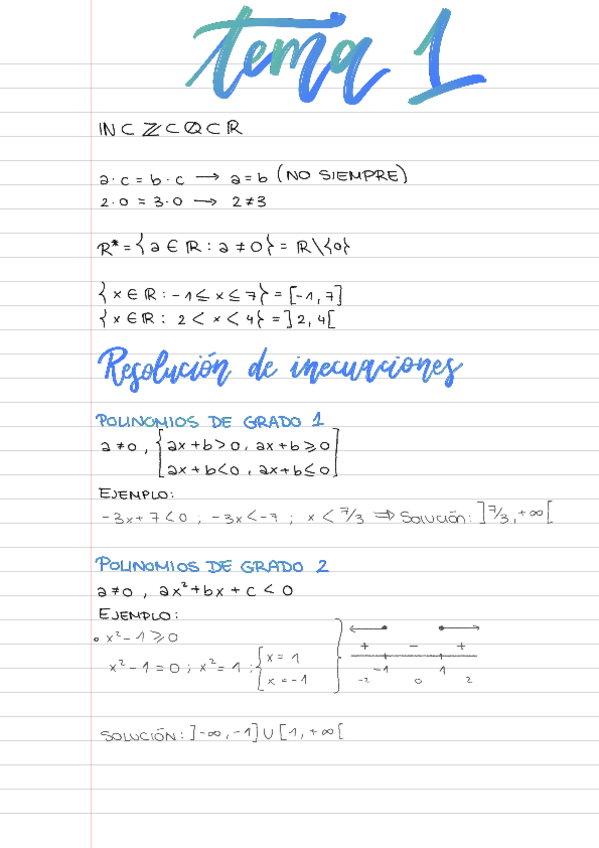 tema 1
ℕ ⊂ ℤ ⊂ ℚ ⊂ ℝ
a·c = b·c → a=b (NO SIEMPRE)
2·0 = 3·0 → 2≠3
ℝ* = {a ∈ ℝ : a ≠ 0} = ℝ\{0}
{x ∈ ℝ : -1 ≤ x ≤ 7} = [-1, 7]
{x ∈ ℝ : 2 < x < 4} = ]2, 4[
Resolución de inecuaciones
POLINOMIOS DE GRADO 1
a ≠ 0, { ax+b>0, ax+b≥0
ax+b<0, ax+b≤0 ]
EJEMPLO:
-3x+7<0 ; -3x<-7 ; x < 7/3 ⇒ Solución: ]7/3, +∞[
POLINOMIOS DE GRADO 2
a≠0, ax²+bx+c < 0
EJEMPLO:
• x²-1 ≥ 0
x²-1 = 0 ; x² = 1 ; { x = 1
x = -1
+ - +
-1 1
-2 0 2
SOLUCIÓN: ]-∞, -1] ∪ [1, +∞[